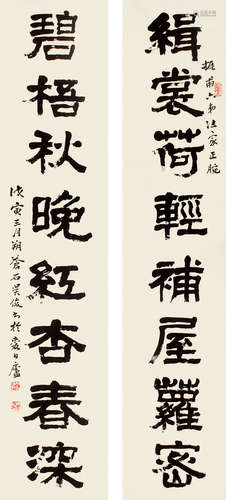 緝裳荷輕補屋蘿密
振甫六弟法家正腕
碧梧秋晚紅杏春深
戊寅三月朔蒼石吳俊書於愛日廬